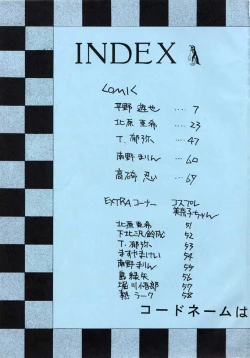 INDEX
comic
平野 遊也 ‥‥ 7
北原 亜希 ‥‥ 23
T. 郁弥 ‥‥ 47
南野 まりん ‥‥ 60
高 忍 ‥‥ 69
EXTRAコーナー コスプレ
ちゃん
北原亜希 51
下北沢鈴成 52
T. 郁弥 53
ますやまけい 54
南野まりん 55
島 綾 56
堀川悟郎 57
ーク 58
コードネームは